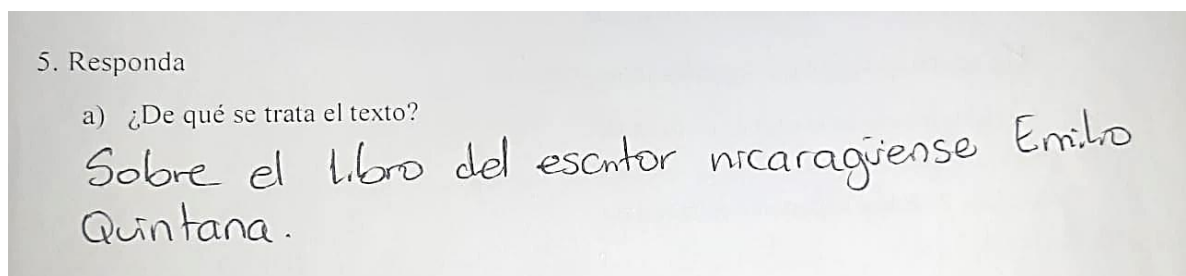 5. Responda
a) ¿De qué se trata el texto?
Sobre el libro del escritor nicaragüense Emilio
Quintana.